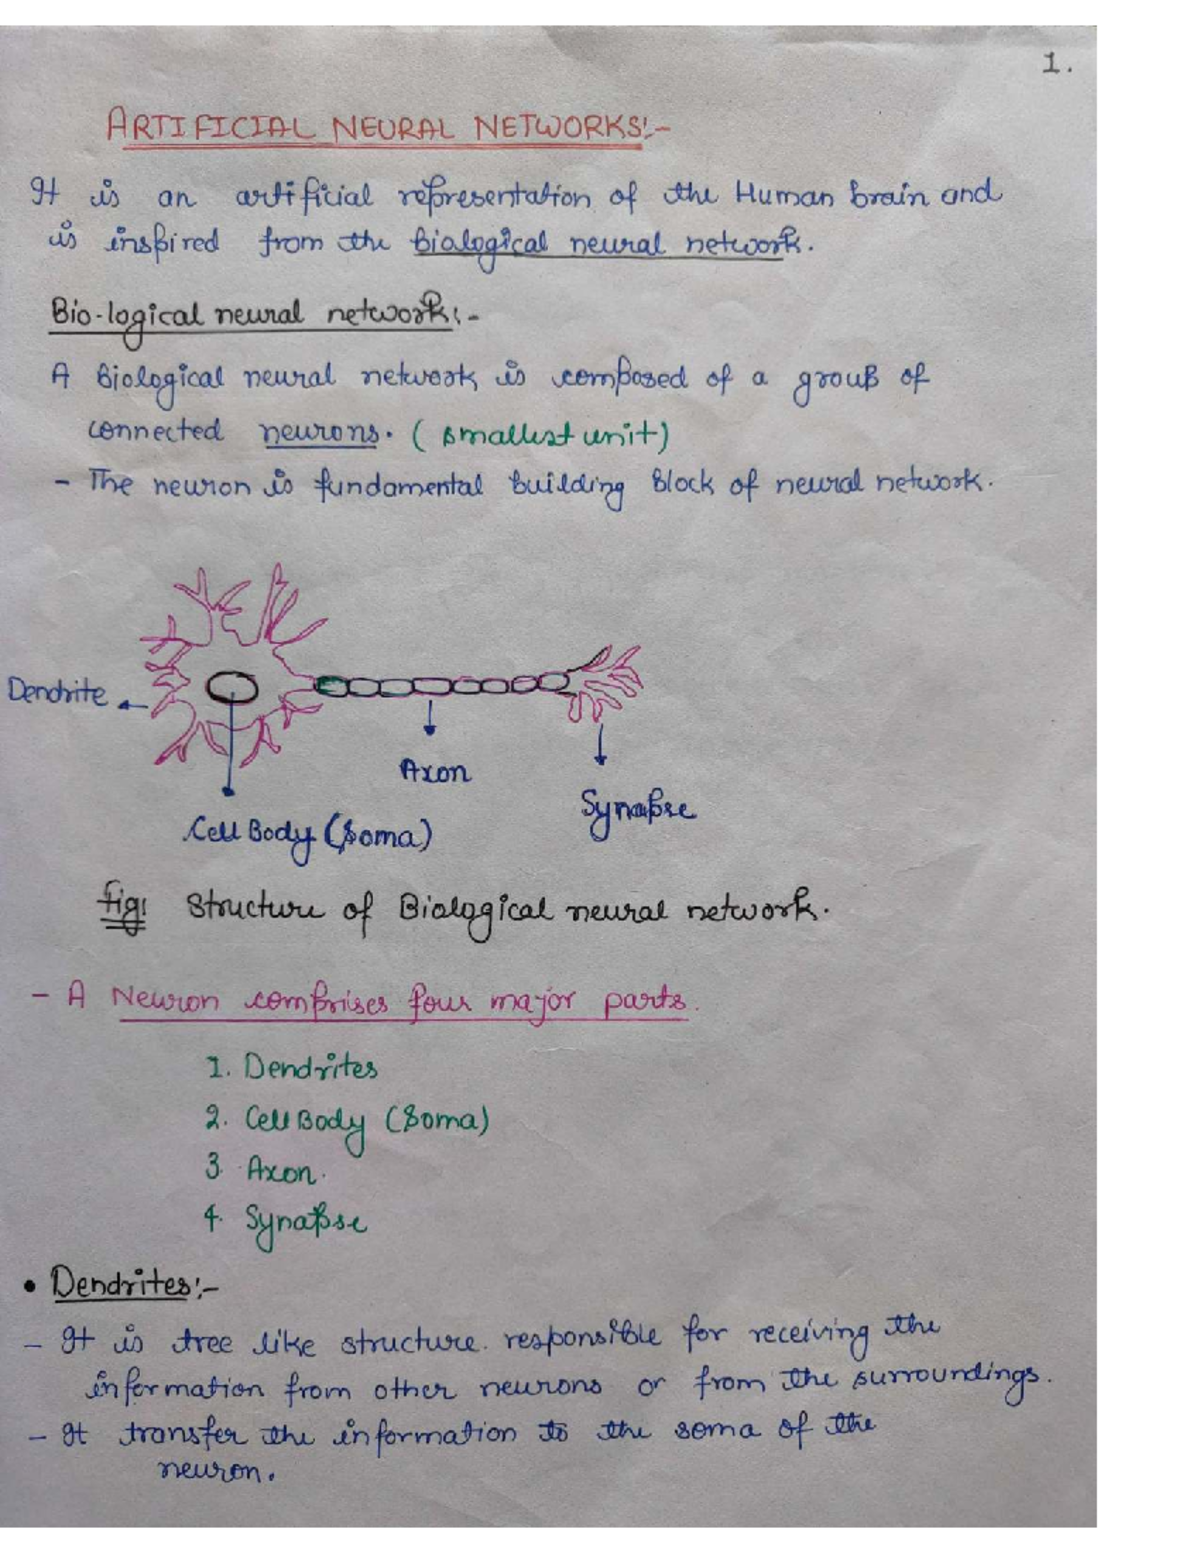 1.
ARTIFICIAL NEURAL NETWORKS:-
It is an artificial representation of the Human brain and
is inspired from the biological neural network.
Bio-logical neural network:-
A Biological neural network is composed of a group of
connected neurons. (smallest unit)
- The neuron is fundamental building block of neural network.
Dendrite
Axon
Synapse
Cell Body (Soma)
fig: Structure of Biological neural network.
- A Neuron comprises four major parts.
1. Dendrites
2. Cell Body (Soma)
3. Axon.
4. Synapse
• Dendrites:-
- It is tree like structure. responsible for receiving the
information from other neurons or from the surroundings.
- It transfer the information to the soma of the
neuron.